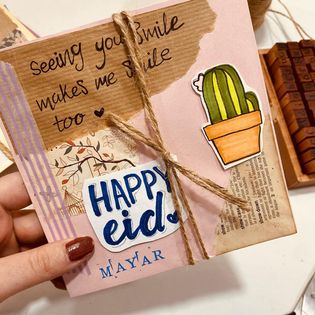 seeing you smile
makes me smile
too ♥
HAPPY
eid
MAYAR